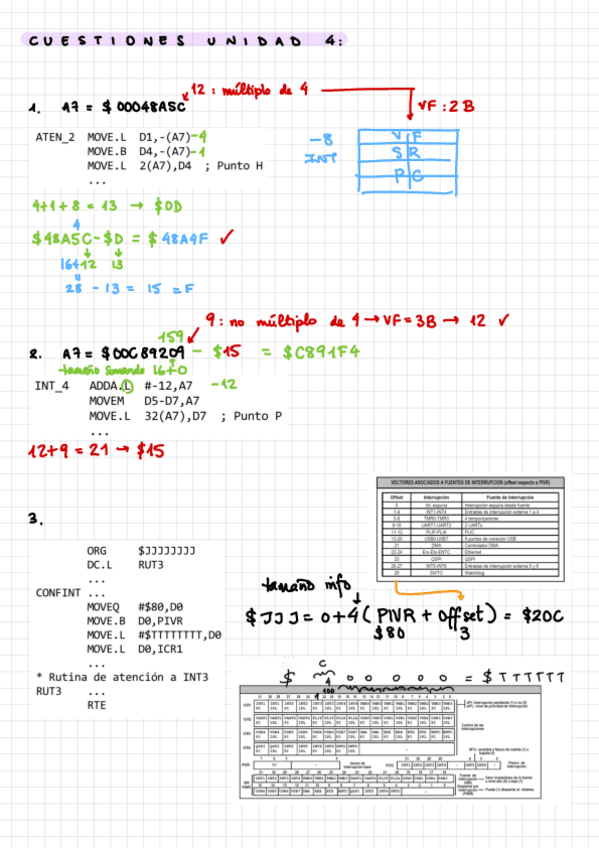 CUESTIONES UNIDAD 4:
12 : múltiplo de 4
1. A7 = $00048A5C
VF : 2 B
ATEN_2 MOVE.L D1,-(A7) -4
MOVE.B D4,-(A7) -1
MOVE.L 2(A7),D4 ; Punto H
...
-8
INT
V F
S R
P C
4+1+8 = 13 → $0D
4
$48A5C - $D = $ 48A4F ✓
16+12 13
28 - 13 = 15 = F
9 : no múltiplo de 4 → VF = 3B → 12 ✓
159
2. A7 = $00C89209 - $15 = $C891F4
tamaño sumando 16+0
INT_4 ADDA.L #-12,A7 -12
MOVEM D5-D7,A7
MOVE.L 32(A7),D7 ; Punto P
...
12+9 = 21 → $15
VECTORES ASOCIADOS A FUENTES DE INTERRUPCIÓN (offset respecto a PIVR)
Offset Interrupción Fuente de Interrupción
0 Int. espuria Interrupción espuria desde fuente
1-4 INT1-INT4 Entradas de interrupción externa 1 a 4
5-8 TMR0-TMR3 4 temporizadores
9-10 UART1-UART2 2 UARTs
11-12 PLIP-PLIA PLIC
13-20 USB0-USB7 8 puntos de conexión USB
21 DMA Controlador DMA
22-24 Erx-Etx-ENTC Ethernet
25 QSPI QSPI
26-27 INT5-INT6 Entradas de interrupción externa 5 y 6
28 SWTO Watchdog
3.
ORG $JJJJJJJJ
DC.L RUT3
...
CONFINT ...
MOVEQ #$80,D0
MOVE.B D0,PIVR
MOVE.L #$TTTTTTTT,D0
MOVE.L D0,ICR1
...
* Rutina de atención a INT3
RUT3 ...
RTE
tamaño info
$JJJ = 0+4 ( PIVR + Offset ) = $20C
$80 3
$ C 0 0 0 0 0 0 = $TTTTTT
4
1100